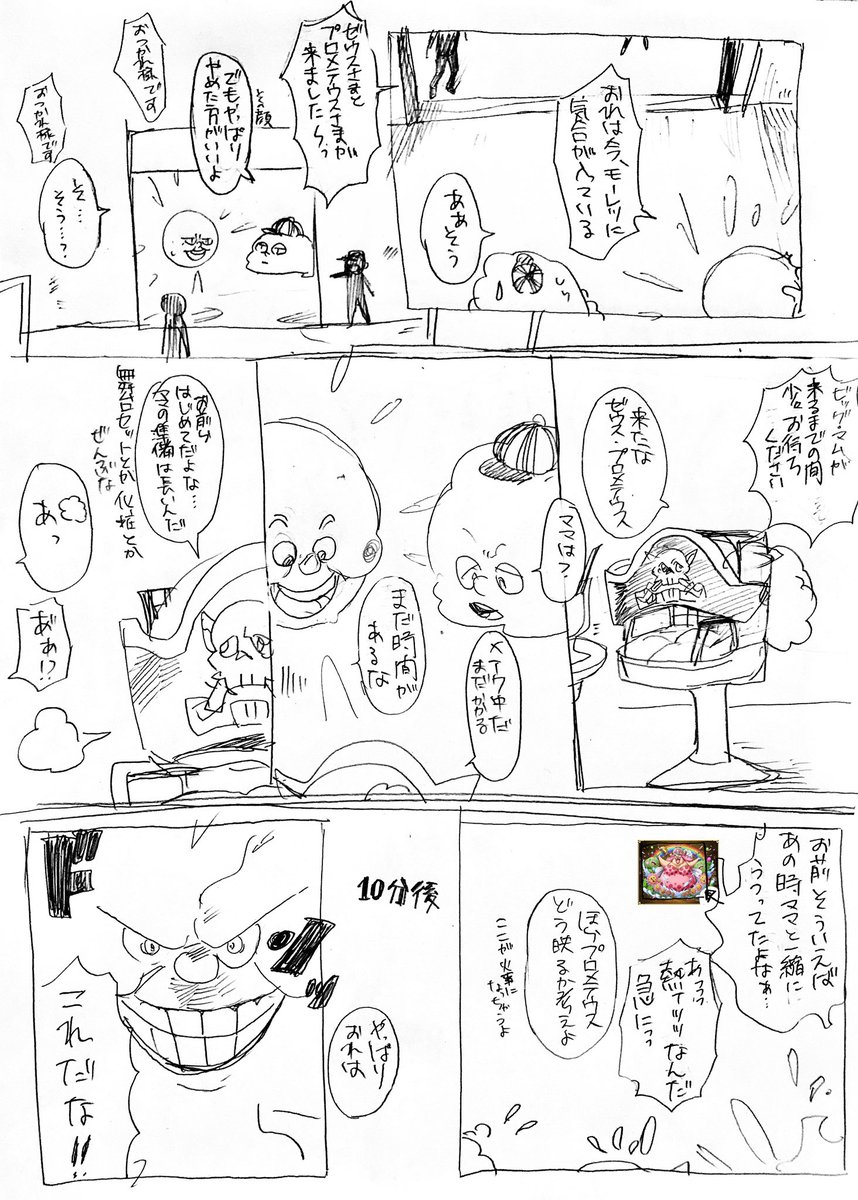 おれは今、モーレツに
気合が入っている
ああそう
ゼウスさまと
プロメテウスさまが
来ましたらっ
でもやっぱり
やめた方がいいよ
おつかれ様です
おつかれ様です
そ…
そう…?
ビッグ・マムが
来るまでの間
少々お待ち
ください
来たな
ゼウス プロメテウス
ママは?
メイク中だ
まだかかる
まだ時間が
あるな
お前ら
はじめてだよな…
ママの準備は長いんだ
舞台セットとか化粧とか
ぜんぶな
あっ
あぁ!?
お前そういえば
あの時ママと一緒に
うつってたよなぁ…
あつっ
熱ィッッなんだ
急にっっ
ほらプロメテウス
どう映るか考えよ
ここが火事に
なっちゃうよ
10分後
やっぱり
おれは
ドンッ
これだな!!